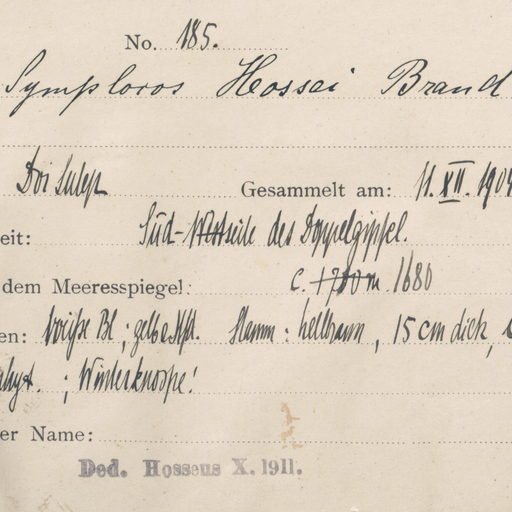 No. 185.
Symplocos Hossei Brand
Doi Sutep
Gesammelt am: 11. XII. 1904
eit: Süd-Westseite des Doppelgipfel.
dem Meeresspiegel: c. 1700 m 1680
en: Weiße Bl; gelbe Stbf. Stamm: hellbraun, 15 cm dick,
; Winterknospe!
er Name:
Ded. Hosseus X. 1911.